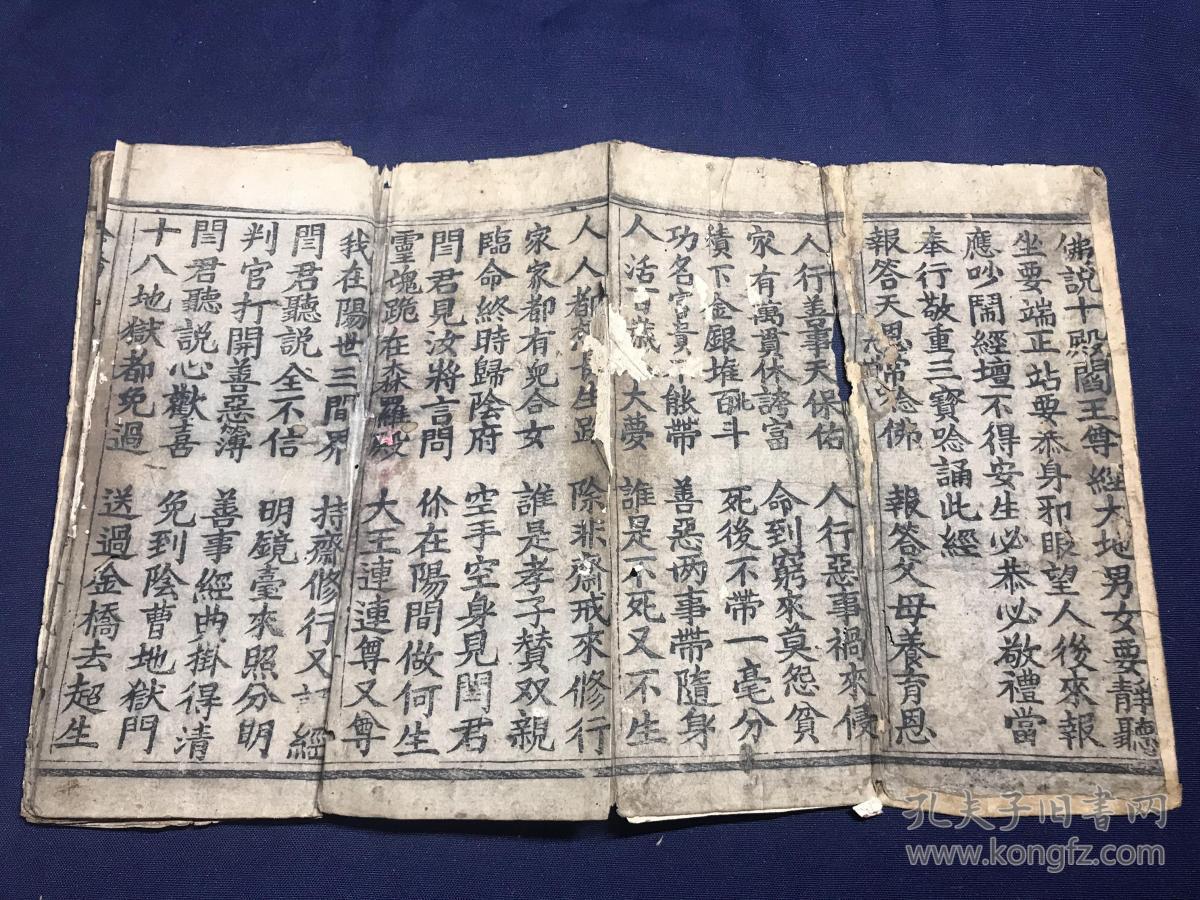 佛説十殿閻王尊經大地男女要靜聽
坐要端正站要恭身邪眼望人後來報
應吵鬧經壇不得安生必恭必敬禮當
奉行敬重三寳唸誦此經
報答天恩常唸佛 報答父母養育恩
人行善事天保佑 人行惡事禍來侵
家有萬貫休誇富 命到窮來莫怨貧
積下金銀堆百斗 死後不帶一毫分
功名富貴不能帶 善惡两事帶隨身
人活百歲 大夢 誰是不死又不生
人人都 長生路 除非齋戒來修行
家家都有兒合女 誰是孝子賛双親
臨命終時歸陰府 空手空身見閆君
閆君見汝將言問 你在陽間做何生
靈魂跪在森羅殿 大王連連尊又尊
我在陽世三間界 持齋修行又 經
閆君聽説全不信 明鏡臺來照分明
判官打開善惡簿 善事經典掛得清
閆君聽説心歡喜 免到陰曹地獄門
十八地獄都免過 送過金橋去超生
孔夫子旧书网
www.kongfz.com